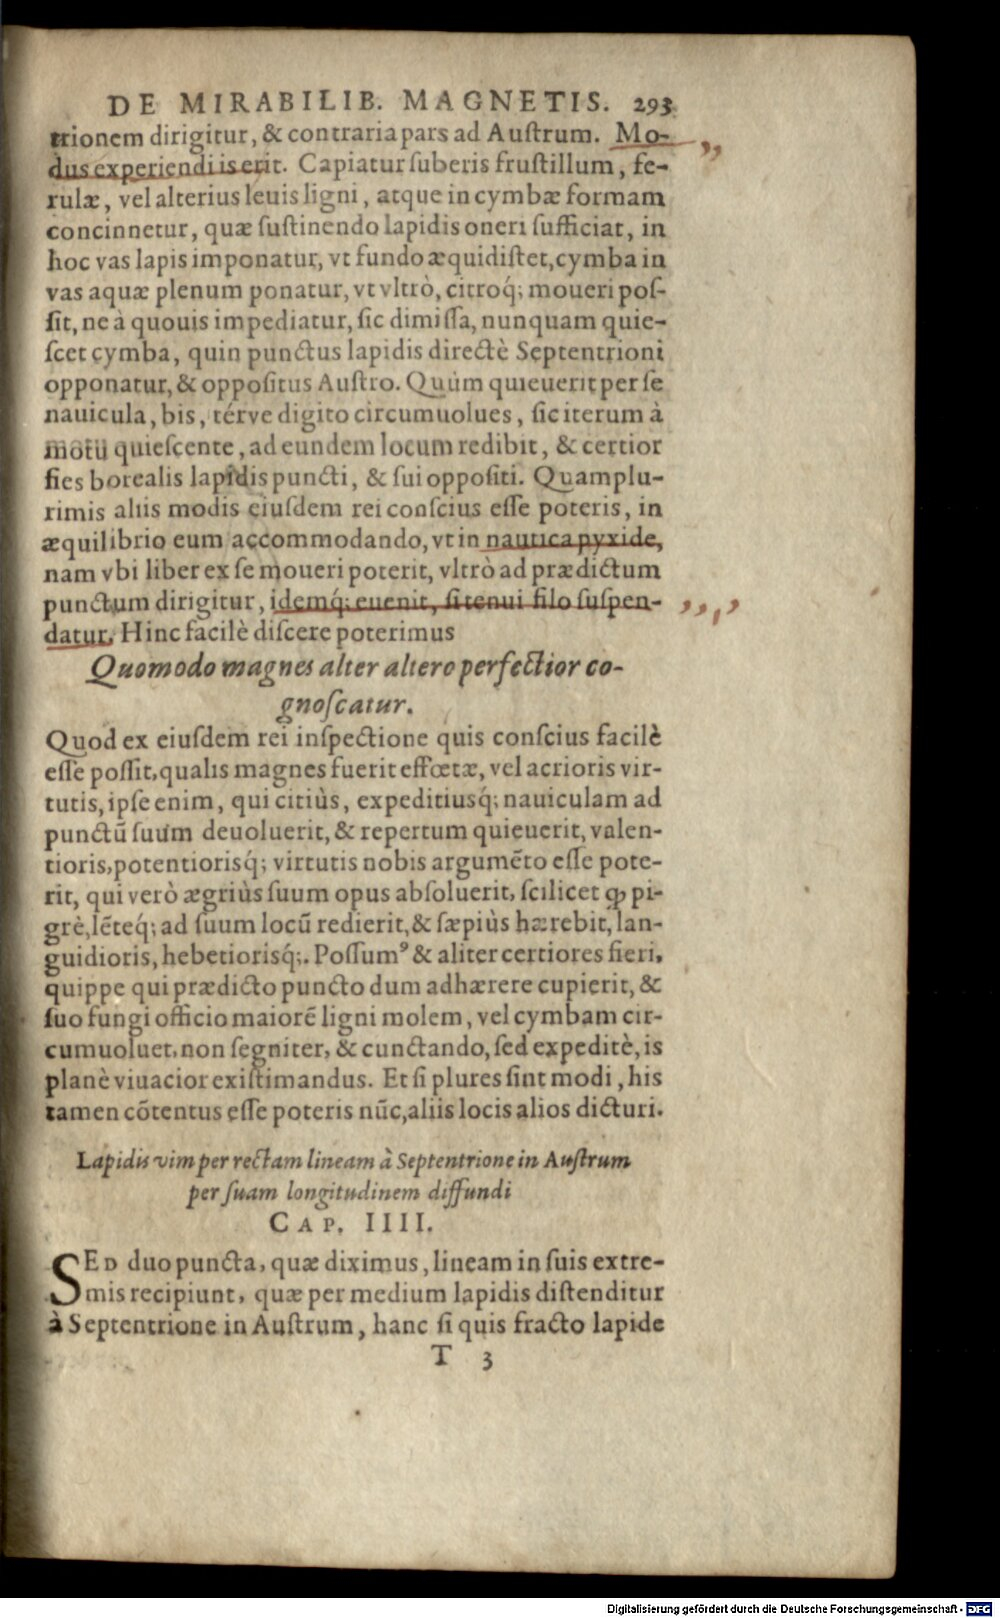 DE MIRABILIB. MAGNETIS. 293
trionem dirigitur, & contraria pars ad Auſtrum. Mo-
dus experiendi is erit. Capiatur ſuberis fruſtillum, fe-
rulæ, vel alterius leuis ligni, atque in cymbæ formam
concinnetur, quæ ſuſtinendo lapidis oneri ſufficiat, in
hoc vas lapis imponatur, vt fundo æquidiſtet, cymba in
vas aquæ plenum ponatur, vt vltrò, citroq́; moueri poſ-
ſit, ne à quouis impediatur, ſic dimiſſa, nunquam quie-
ſcet cymba, quin punctus lapidis directè Septentrioni
opponatur, & oppoſitus Auſtro. Quùm quieuerit per ſe
nauicula, bis, térve digito circumuolues, ſic iterum à
motu quieſcente, ad eundem locum redibit, & certior
fies borealis lapidis puncti, & ſui oppoſiti. Quamplu-
rimis aliis modis eiuſdem rei conſcius eſſe poteris, in
æquilibrio eum accommodando, vt in nautica pyxide,
nam vbi liber ex ſe moueri poterit, vltrò ad prædictum
punctum dirigitur, idemq́; euenit, ſi tenui filo ſuſpen-
datur. Hinc facilè diſcere poterimus
Quomodo magnes alter altero perfectior co-
gnoſcatur.
Quod ex eiuſdem rei inſpectione quis conſcius facilè
eſſe poſſit, qualis magnes fuerit effœtæ, vel acrioris vir-
tutis, ipſe enim, qui citiùs, expeditiusq́; nauiculam ad
punctū ſuum deuoluerit, & repertum quieuerit, valen-
tioris, potentiorisq́; virtutis nobis argumēto eſſe pote-
rit, qui verò ægriùs ſuum opus abſoluerit, ſcilicet ꝙ pi-
grè, lēteq́; ad ſuum locū redierit, & ſæpiùs hærebit, lan-
guidioris, hebetiorisq́;. Poſſumꝰ & aliter certiores fieri,
quippe qui prædicto puncto dum adhærere cupierit, &
ſuo fungi officio maiorē ligni molem, vel cymbam cir-
cumuoluet, non ſegniter, & cunctando, ſed expeditè, is
planè viuacior exiſtimandus. Et ſi plures ſint modi, his
tamen cōtentus eſſe poteris nūc, aliis locis alios dicturi.
Lapidis vim per rectam lineam à Septentrione in Auſtrum
per ſuam longitudinem diffundi
CAP. IIII.
SED duo puncta, quæ diximus, lineam in ſuis extre-
mis recipiunt, quæ per medium lapidis diſtenditur
à Septentrione in Auſtrum, hanc ſi quis fracto lapide
T 3
Digitalisierung gefördert durch die Deutsche Forschungsgemeinschaft - DFG